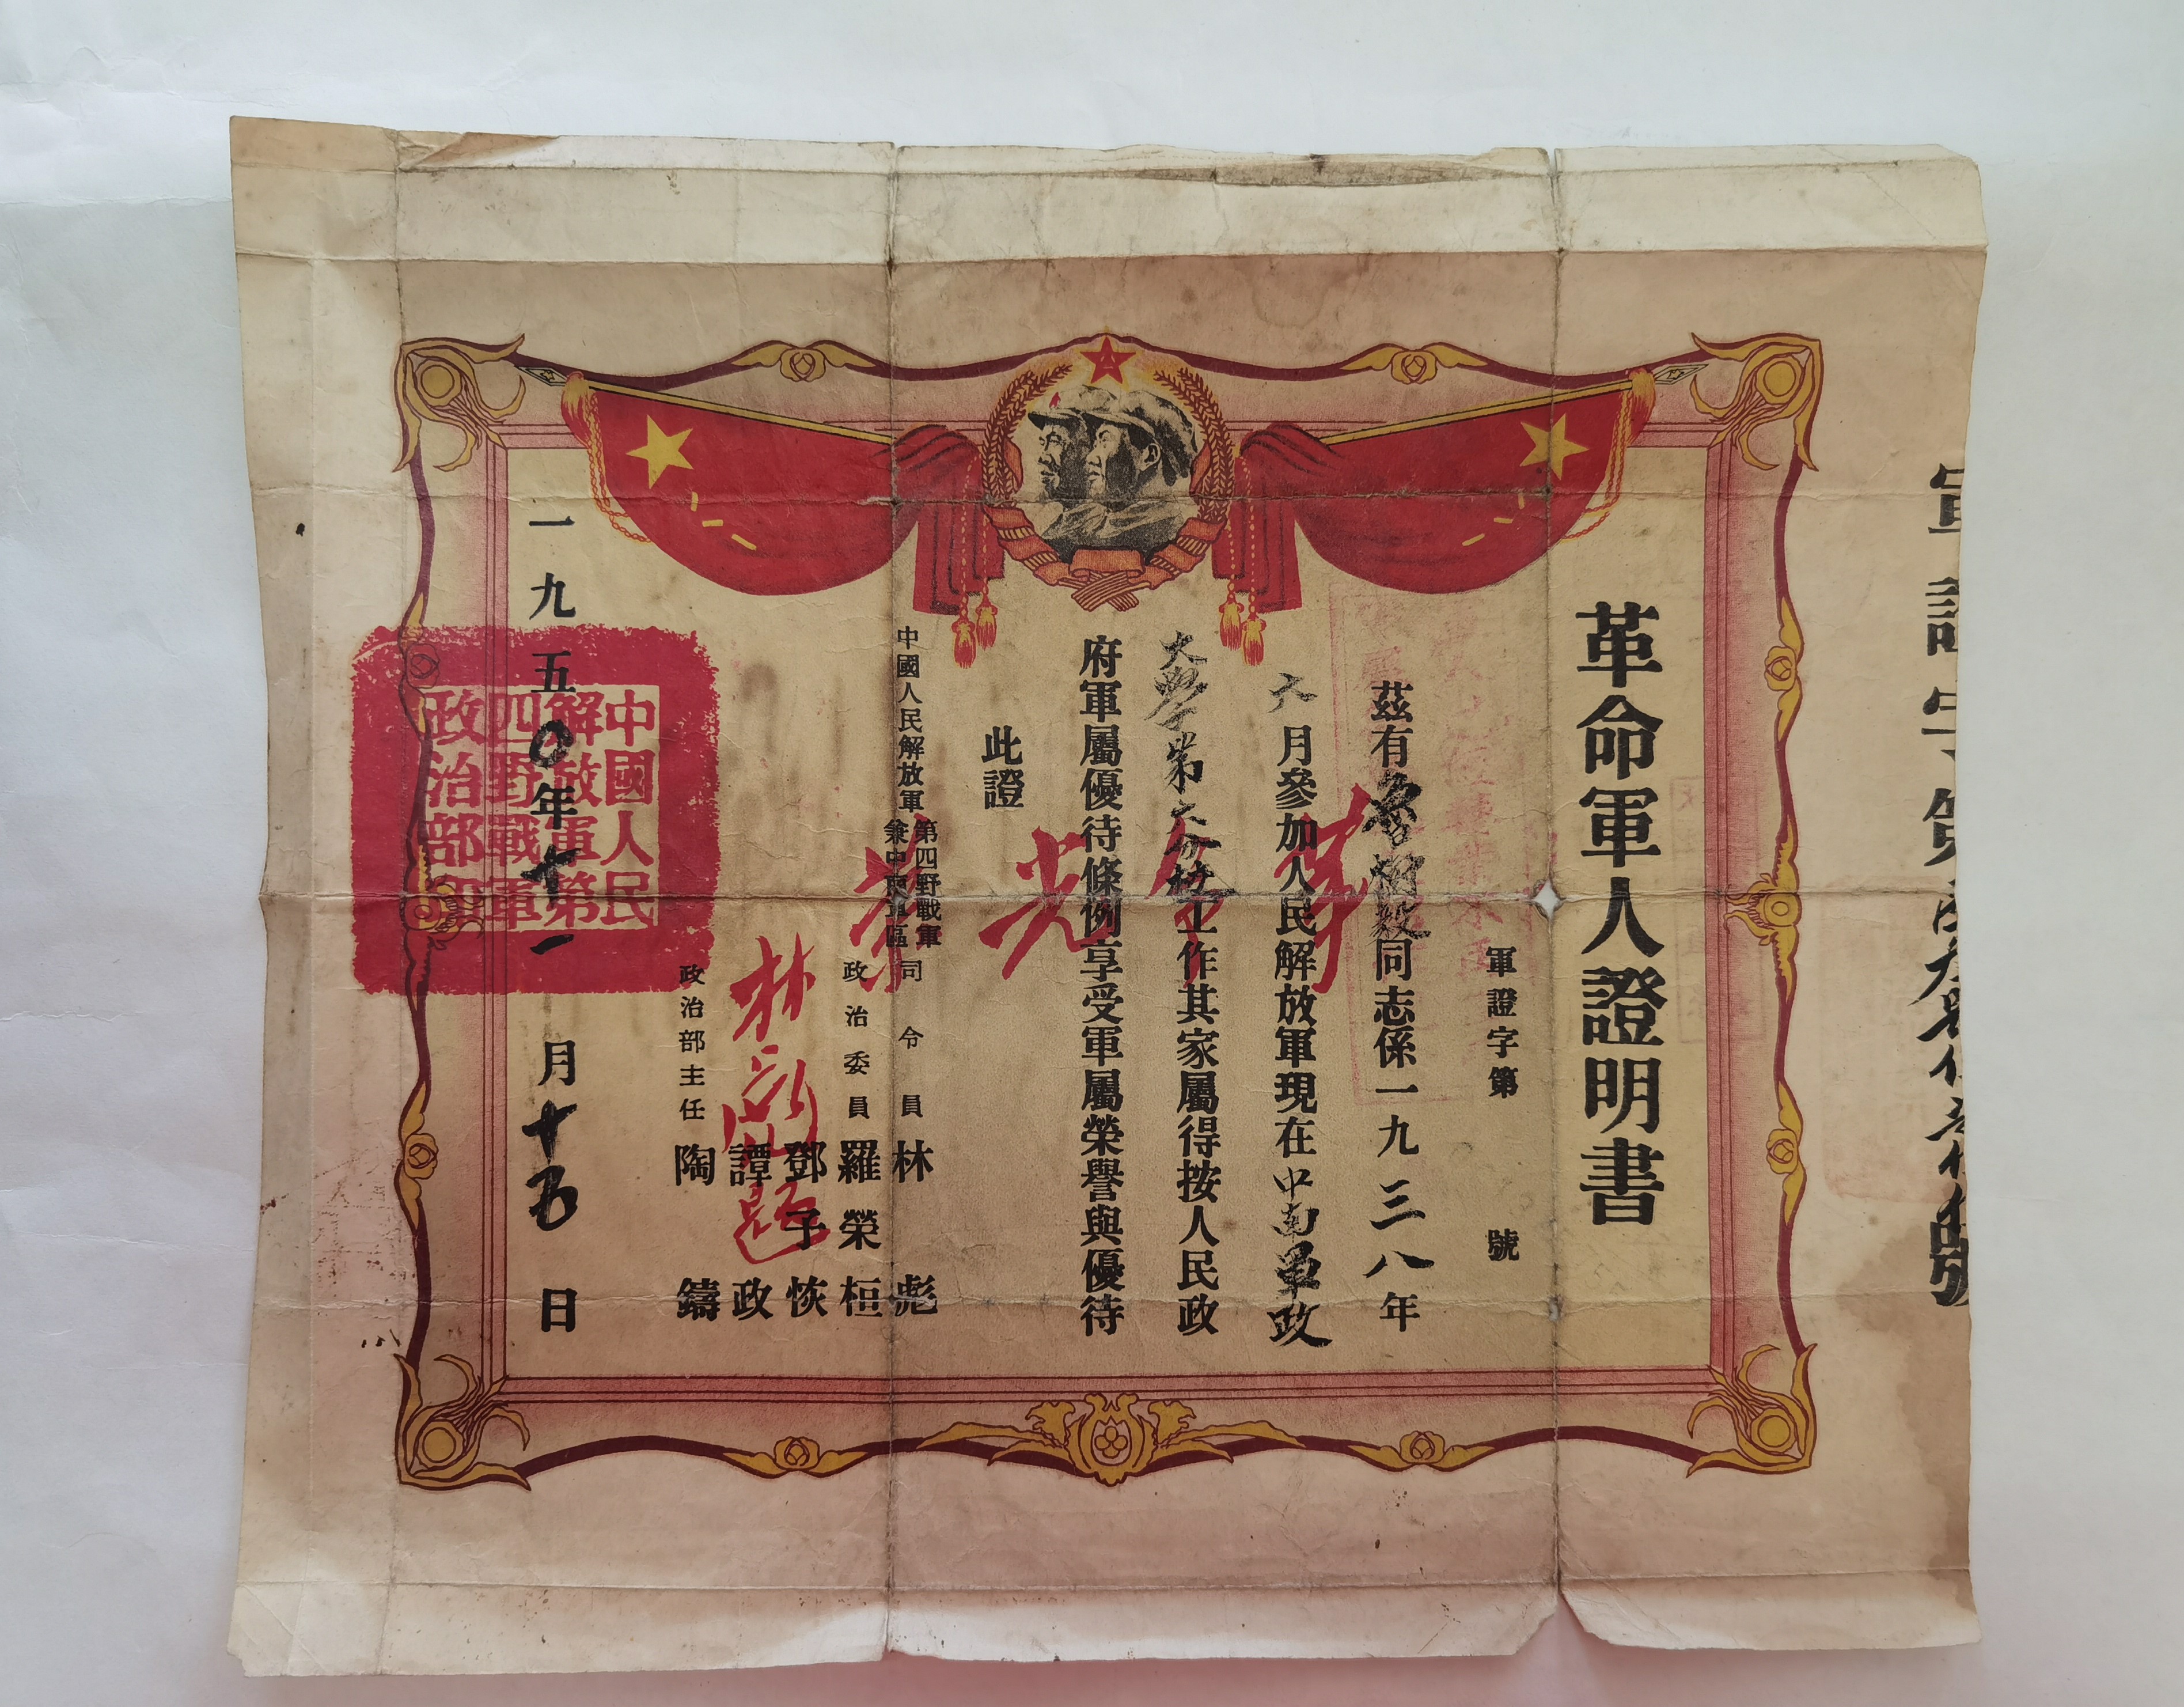 革命軍人證明書
軍證字第 號
茲有 同志係一九三八年
六月參加人民解放軍現在中南軍政
大學第六分校工作其家屬得按人民政
府軍屬優待條例享受軍屬榮譽與優待
此證
革命光榮
林彪題
中國人民解放軍第四野戰軍兼中南軍區司令員林彪
政治委員羅榮桓
鄧子恢
譚政
政治部主任陶鑄
一九五0年十一月十五日
中國人民
解放軍第
四野戰軍
政治部印